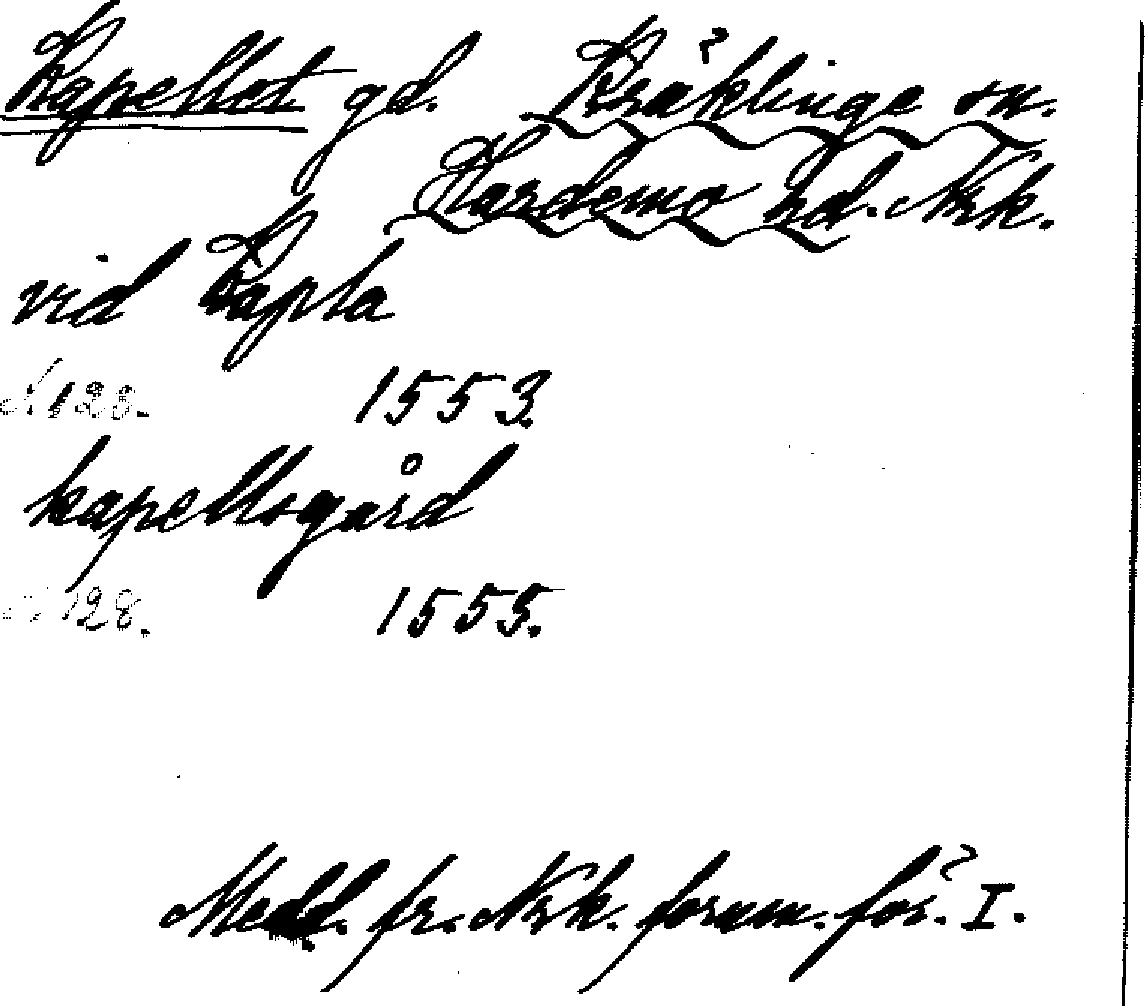 Kapellet gd. Kräklinge sn.
Hardemo hd. Nrk.
vid Kapla
N 128. 1553.
kapellsgård
N 128. 1555.
Medd. fr. Nrk. fornm. för. I.